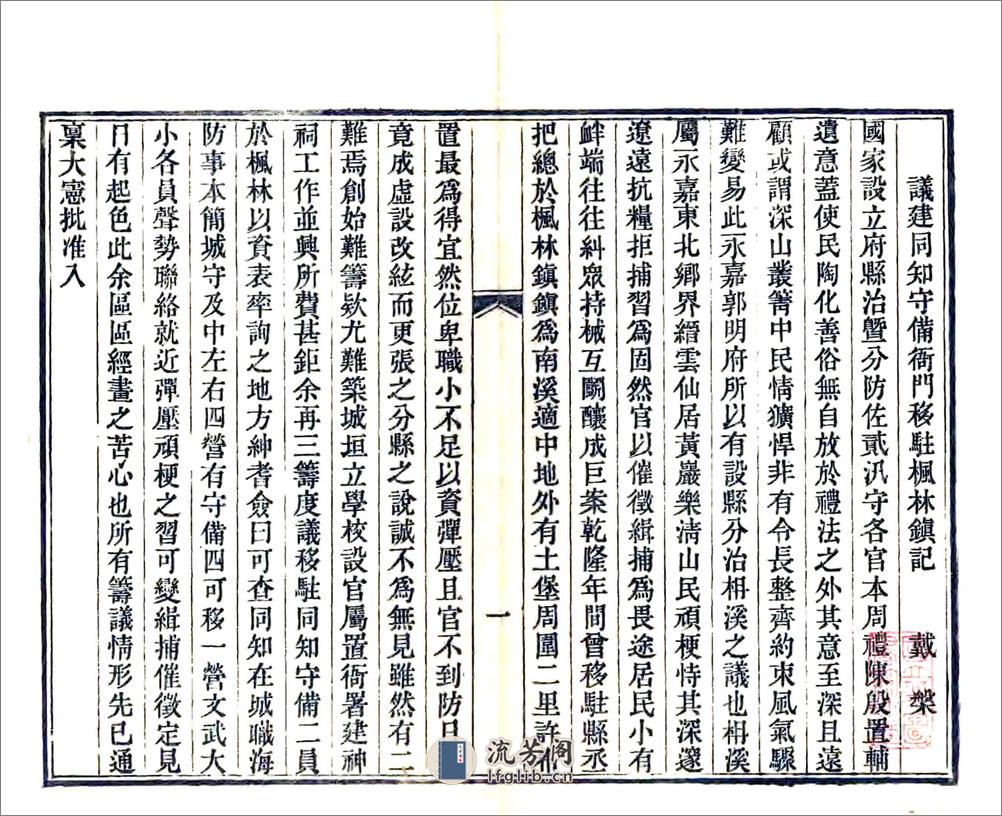 議建同知守備衙門移駐楓林鎮記 戴槃
國家設立府縣治暨分防佐貳汛守各官本周禮陳殷置輔
遺意蓋使民陶化善俗無自放於禮法之外其意至深且遠
顧或謂深山叢箐中民情獷悍非有令長整齊約束風氣驟
難變易此永嘉郭明府所以有設縣分治枏溪之議也枏溪
屬永嘉東北鄉界縉雲仙居黃巖樂淸山民頑梗恃其深邃
遼遠抗糧拒捕習爲固然官以催徵緝捕爲畏途居民小有
衅端往往糾眾持械互鬭釀成巨案乾隆年間曾移駐縣丞
把總於楓林鎮鎮爲南溪適中地外有土堡周圍二里許布
一
置最爲得宜然位卑職小不足以資彈壓且官不到防日
竟成虛設改絃而更張之分縣之說誠不爲無見雖然有二
難焉創始難籌欵尤難築城垣立學校設官屬置衙署建神
祠工作並興所費甚鉅余再三籌度議移駐同知守備二員
於楓林以資表率詢之地方紳耆僉曰可查同知在城職海
防事本簡城守及中左右四營有守備四可移一營文武大
小各員聲勢聯絡就近彈壓頑梗之習可變緝捕催徵定見
日有起色此余區區經畫之苦心也所有籌議情形先已通
稟大憲批准入
流芳阁
lfglib.cn